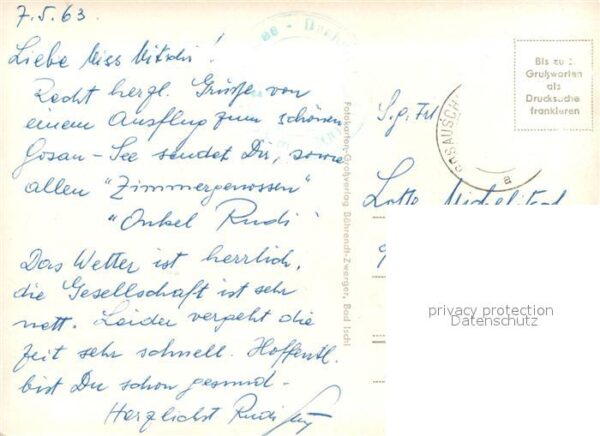 7.5.63.
Liebe Miss Mitschi!
Recht herzl. Grüße von
einem Ausflug zum schönen
Gosau-See sendet Dir, sowie
allen "Zimmergenossen"
"Onkel Rudi"
Das Wetter ist herrlich,
die Gesellschaft ist sehr
nett. Leider vergeht die
Zeit sehr schnell. Hoffentl.
bist Du schon gesund -
Herzlichst Rudi
Fotokarten-Großverlag Bührendt-Zwerger, Bad Ischl
Bis zu 5
Grußworten
als
Drucksache
frankieren
GOSAUSCH
a
S.g. Frl
Lotte
privacy protection
Datenschutz